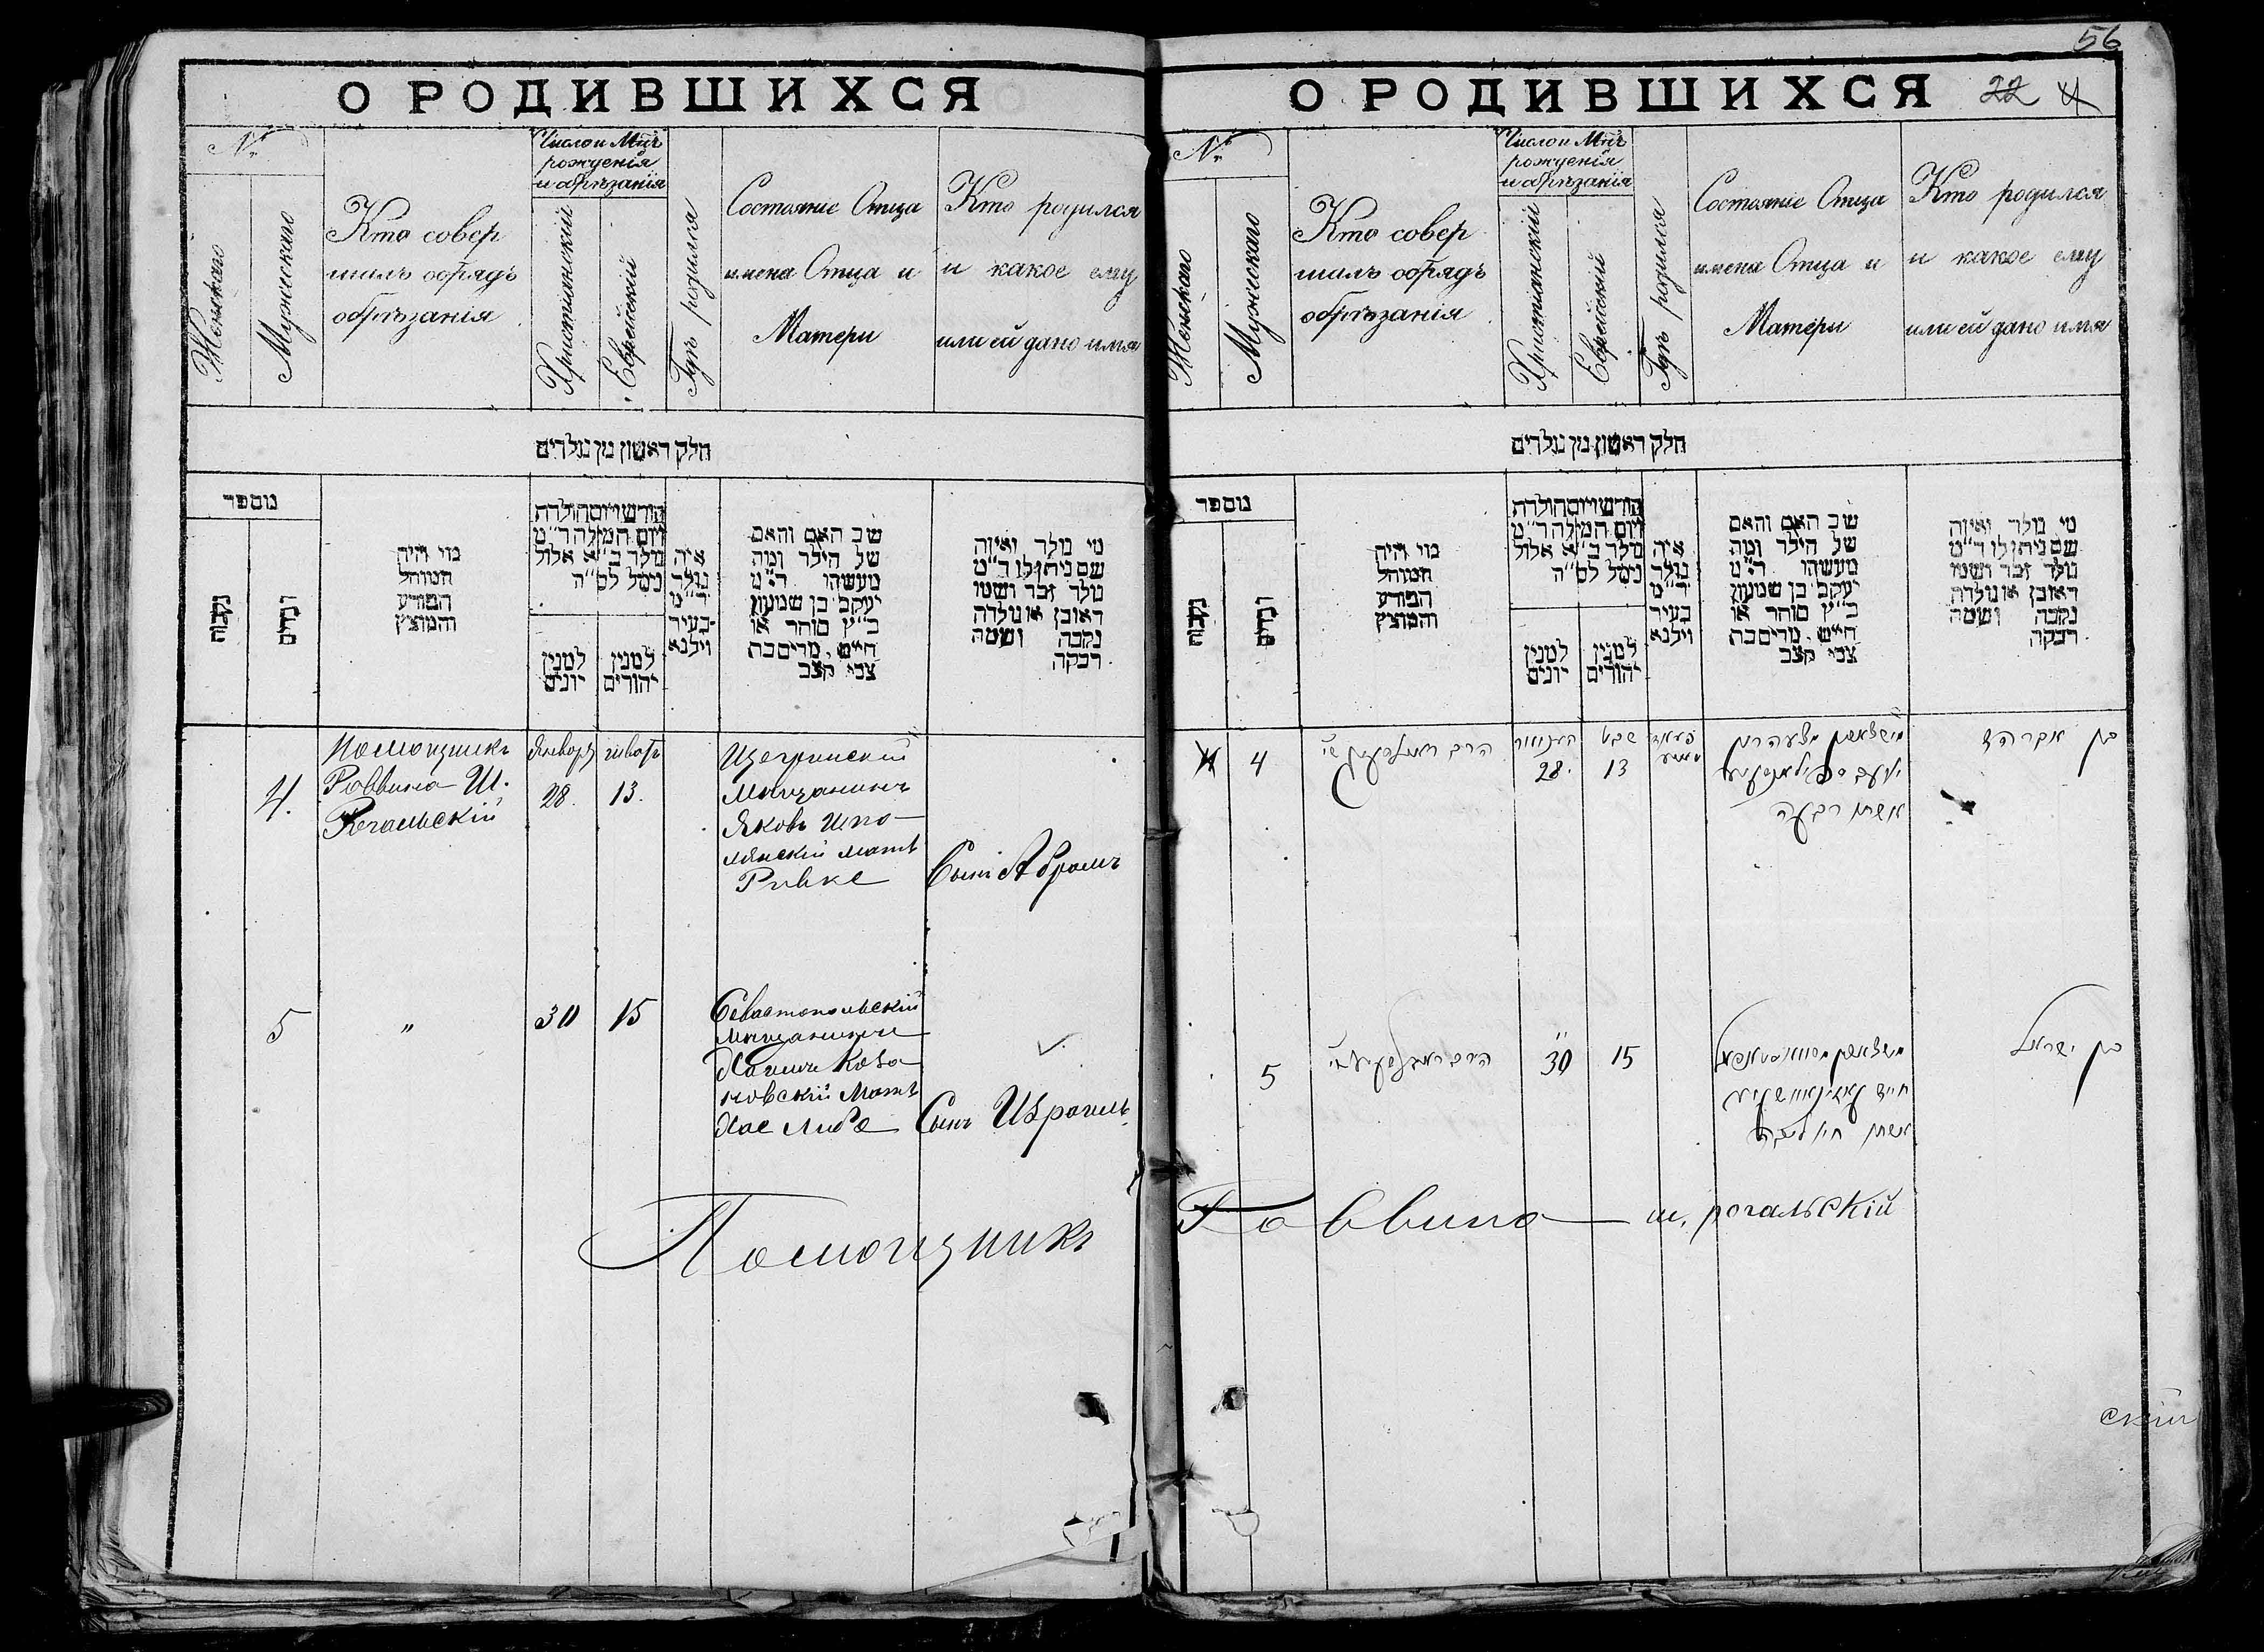 О РОДИВШИХСЯ
№
Женскаго
Мужескаго
Кто совер
шилъ обрядъ
обрѣзанія
Число и Мцъ
рожденія
и обрѣзанія
Христіанскій
Еврейскій
Гдѣ родился
Состояніе Отца
имена Отца и
Матери
Кто родился
и какое ему
или ей дано имя
חלק ראשון מן נולדים
מספר
נקבות
זכרים
מי היה
המוהל
הפורע
והמוצץ
חודש ויום הולדת
ויום המילה ד"מ
נולד ב"א אלול
נימל לס"ה
למנין
יונים
למנין
יהודים
איה
נולד
ד"מ
בעיר
ווילנא
שם האב והאם
של הילד ומה
מעשהו ד"מ
יעקב בן שמעון
כ"ץ סוחר או
חייט, מרים בת
צבי קצב
מי נולד ואיזה
שם ניתן לו ד"מ
נולד זכר ושמו
ראובן או נולדה
נקבה ושמה
רבקה
4.
Помощникъ
Раввина Ш.
Рогальскій
Января
28.
шватъ
13.
Мѣщанинъ
Яковъ Шпо-
лянскій мать
Ривке
Сынъ Абрамъ
5
"
30
15
Севастопольскій
Мѣщанинъ
Хаимъ Каза-
новскій Мать
Хае Либе
Сынъ Израиль.
Помощникъ
56
О РОДИВШИХСЯ
22 4
№
Женскаго
Мужескаго
Кто совер
шилъ обрядъ
обрѣзанія
Число и Мцъ
рожденія
и обрѣзанія
Христіанскій
Еврейскій
Гдѣ родился
Состояніе Отца
имена Отца и
Матери
Кто родился
и какое ему
или ей дано имя
חלק ראשון מן נולדים
מספר
נקבות
זכרים
מי היה
המוהל
הפורע
והמוצץ
חודש ויום הולדת
ויום המילה ד"מ
נולד ב"א אלול
נימל לס"ה
למנין
יונים
למנין
יהודים
איה
נולד
ד"מ
בעיר
ווילנא
שם האב והאם
של הילד ומה
מעשהו ד"מ
יעקב בן שמעון
כ"ץ סוחר או
חייט, מרים בת
צבי קצב
מי נולד ואיזה
שם ניתן לו ד"מ
נולד זכר ושמו
ראובן או נולדה
נקבה ושמה
רבקה
4
28.
שבט
13
אשתו רבקה
בן אברהם
5
"
30
15
בן ישראל
Раввина ш. рогальскій
скій